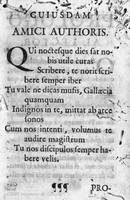 CUIUSDAM
AMICI AUTHORIS.
QUi noctesque dies sat no-
bis utile curas
Scribere, te noris scri-
bere semper iber
Tu vale ne dicas musis, Gallæcia
quamquam
Indignos in te, mittat ab arce
sonos
Cum nos intenti, volumus te
audire magistrum
Tu nos discipulos semper ha-
bere velis.
¶¶¶
PRO-